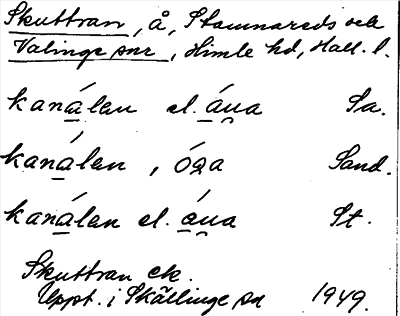 Skuttran, å, Stamnareds och
Valinge snr, Himle hd, Hall. l.
kanálen el. áua Sa.
kanálen, óza Sand.
kanálen el. áua St.
Skuttran ek.
Uppt. i Skällinge sn 1949.